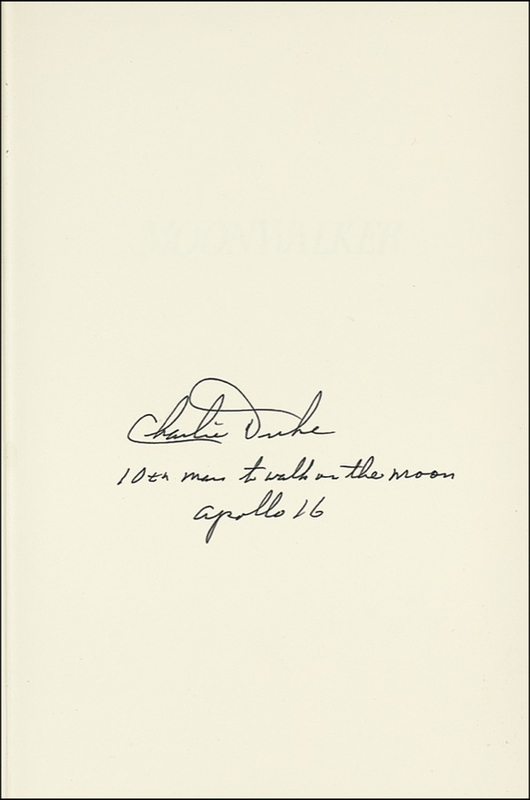 MOONWALKER
Charlie Duke
10th man to walk on the moon
apollo 16